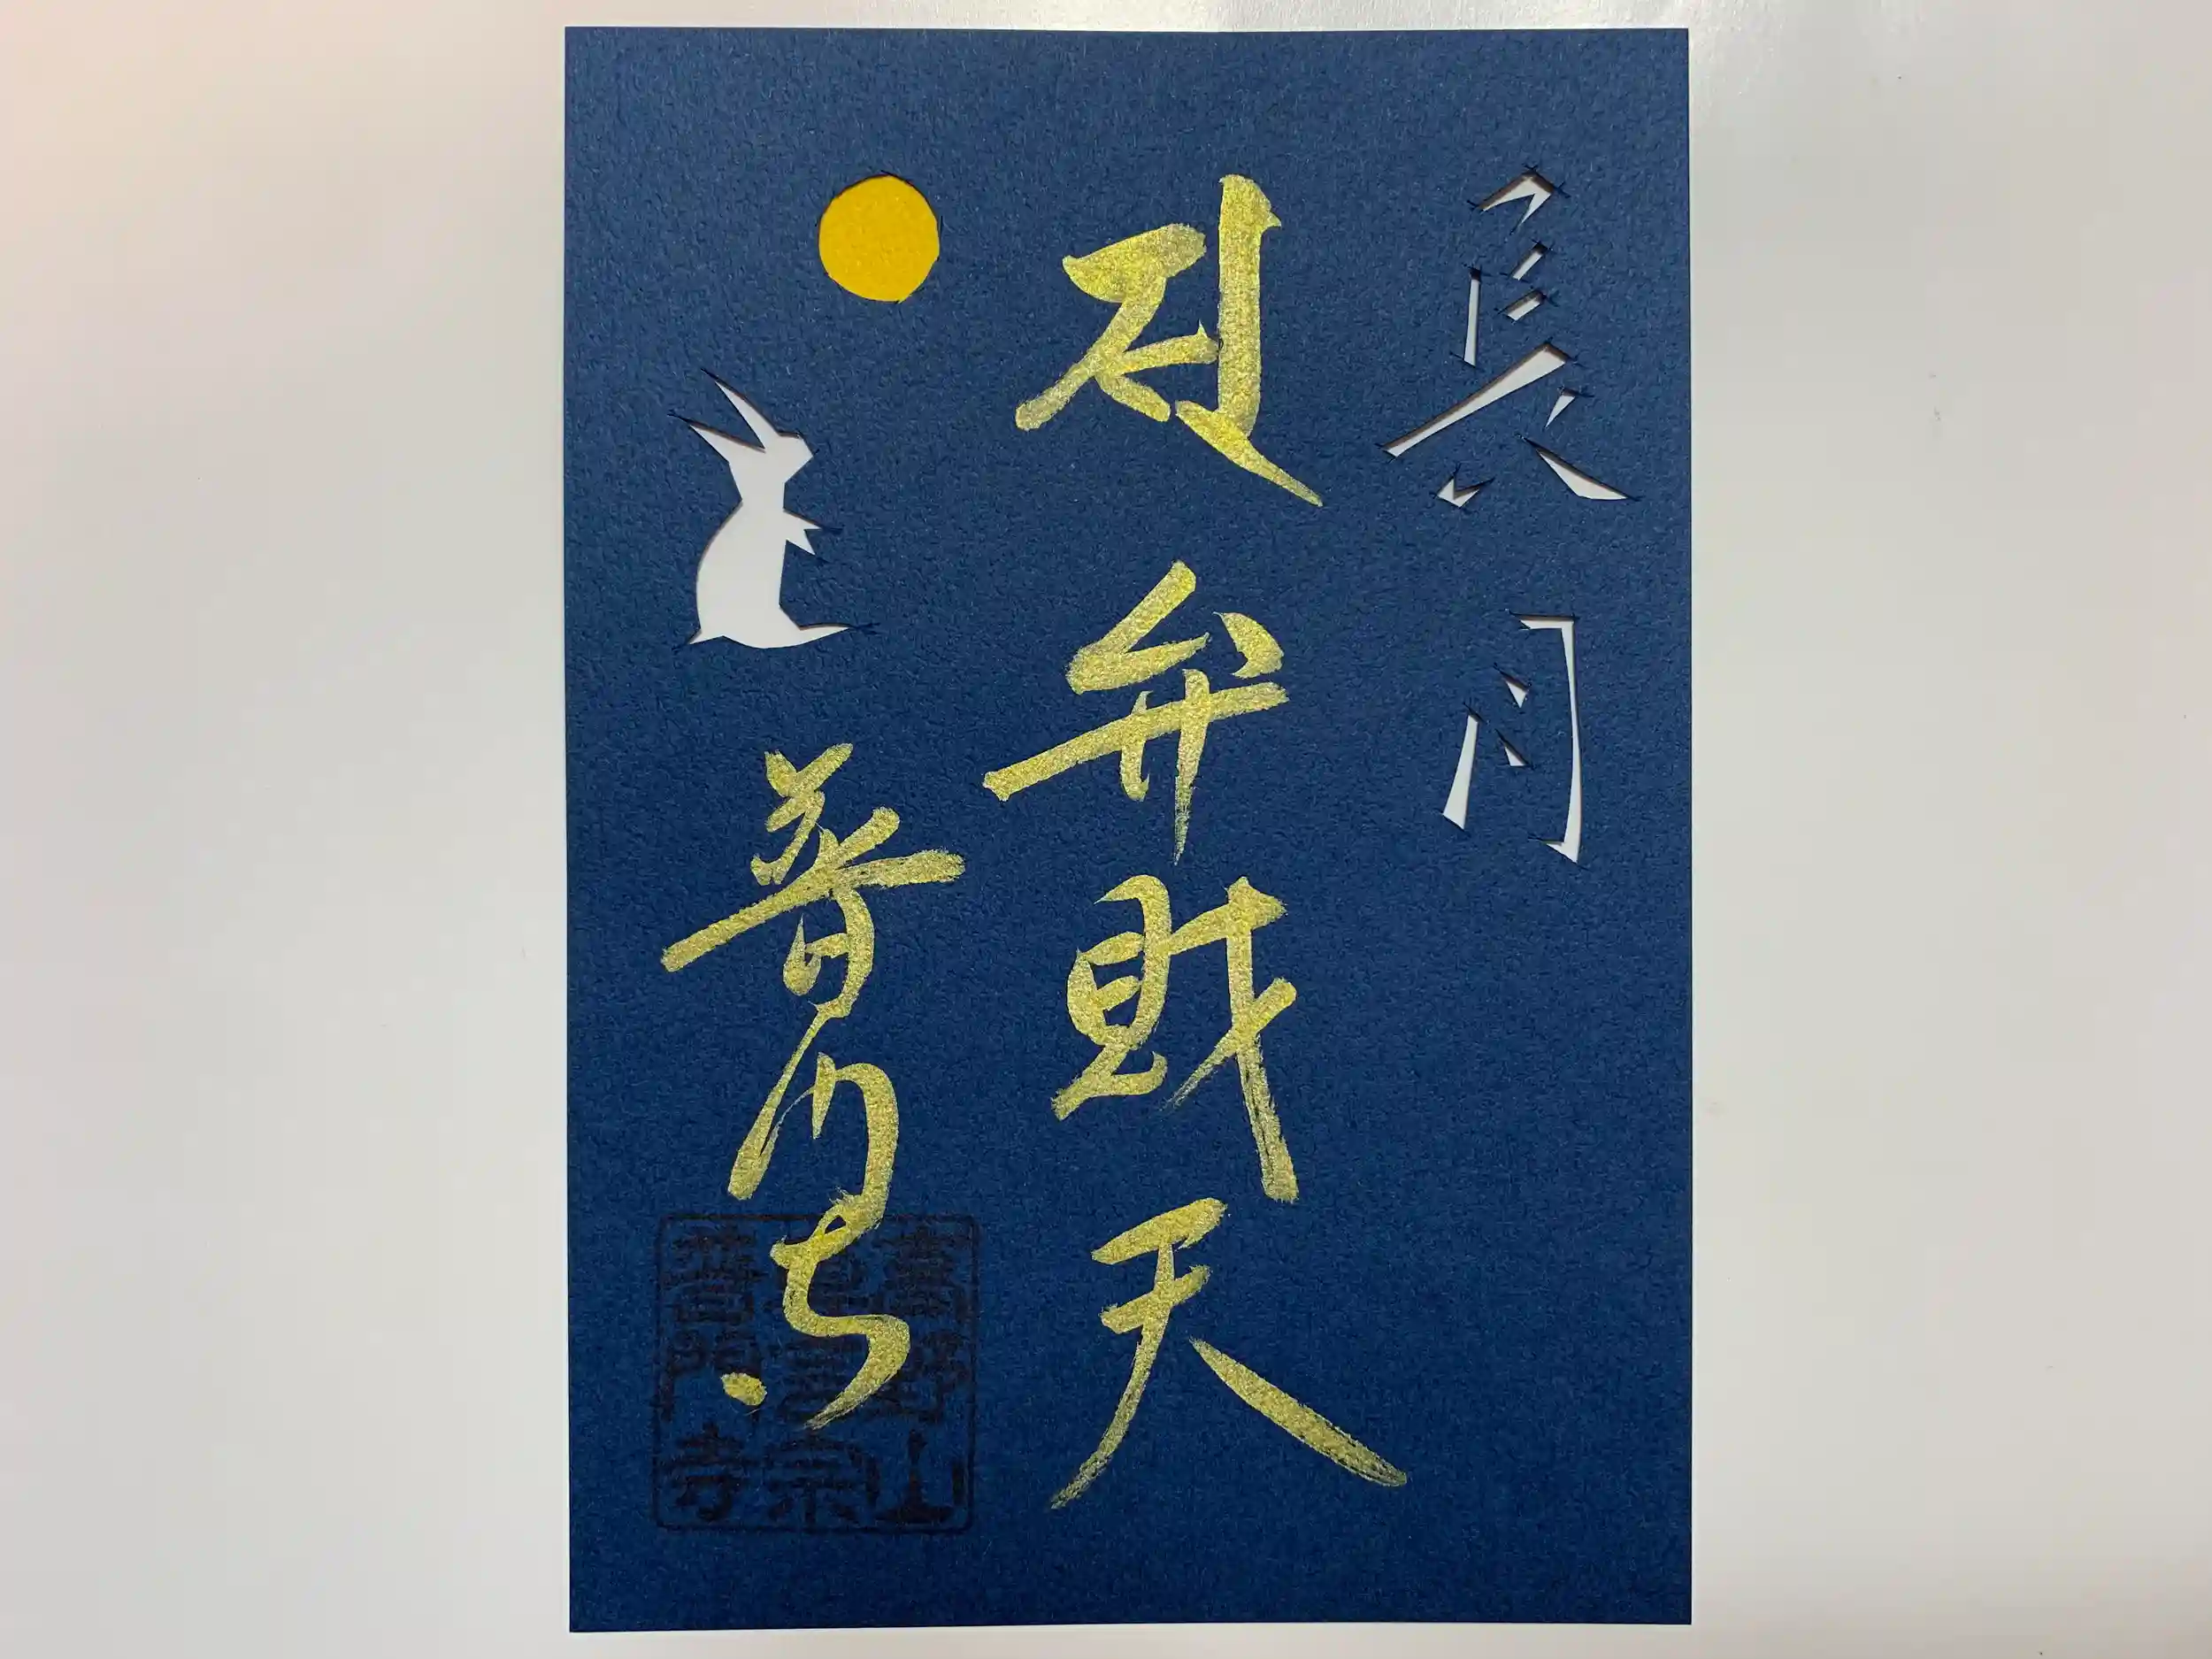 長月
弁財天
普門寺
高野山
真言宗
普門寺